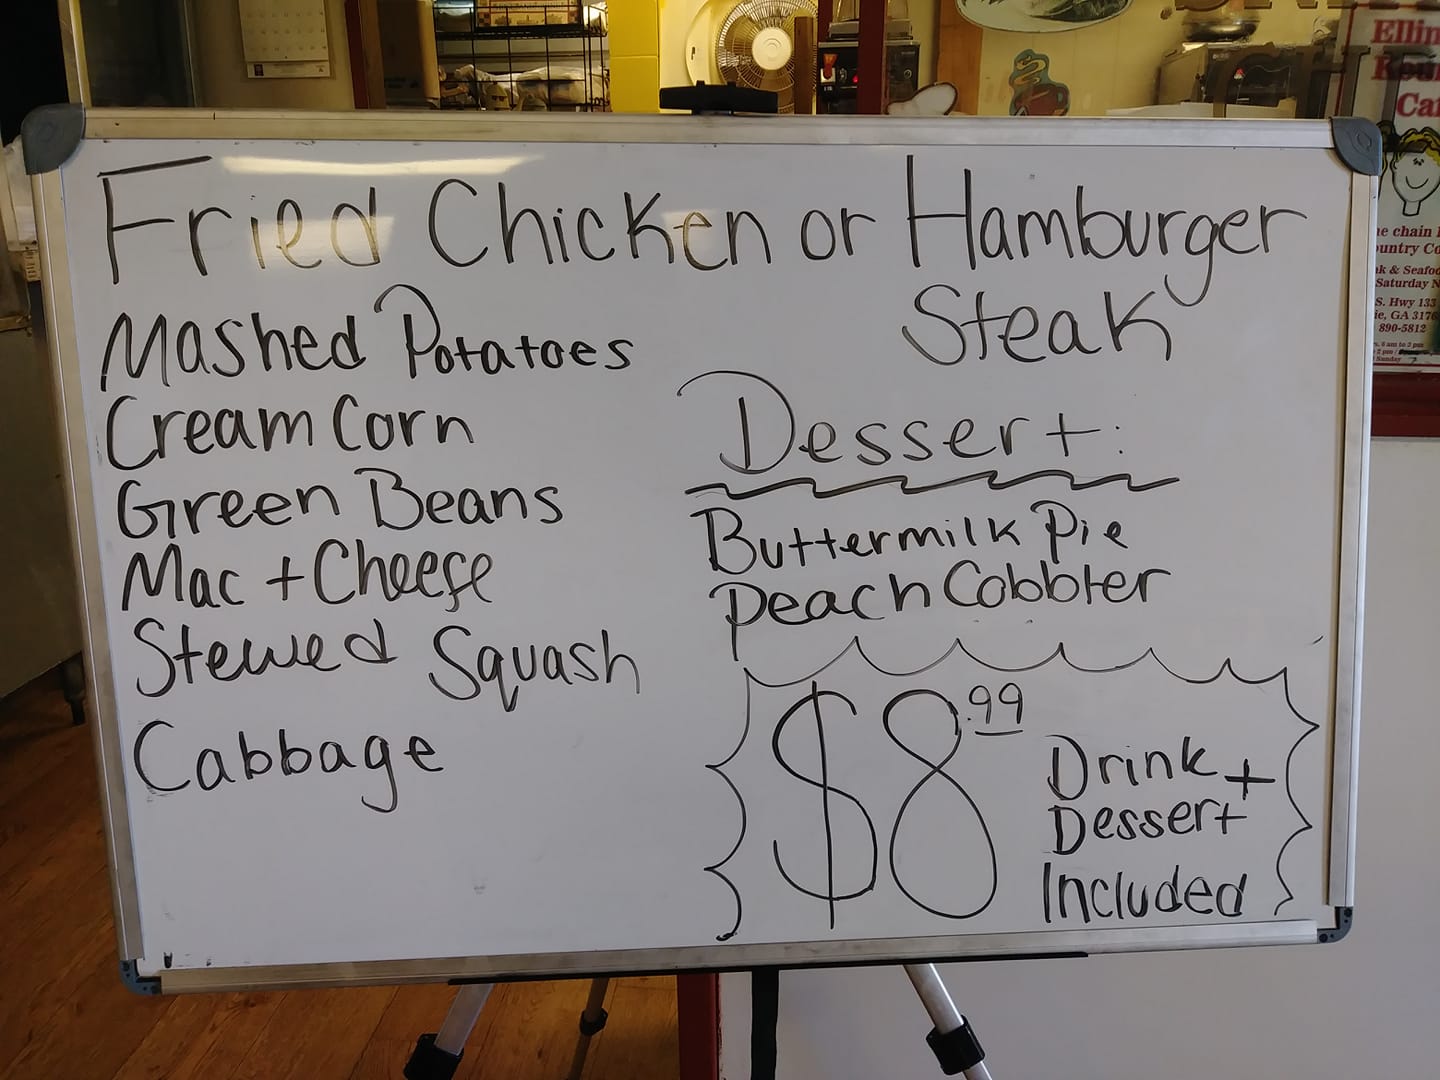 Fried Chicken or Hamburger
Steak
Mashed Potatoes
Cream Corn
Green Beans
Mac + Cheese
Stewed Squash
Cabbage
Dessert:
Buttermilk Pie
Peach Cobbler
$8.99
Drink +
Dessert
Included
Country Co
& Seafoo
Saturday N
S. Hwy 133
GA 3176
890-5812
6 am to 2 pm
2 pm
Sunday